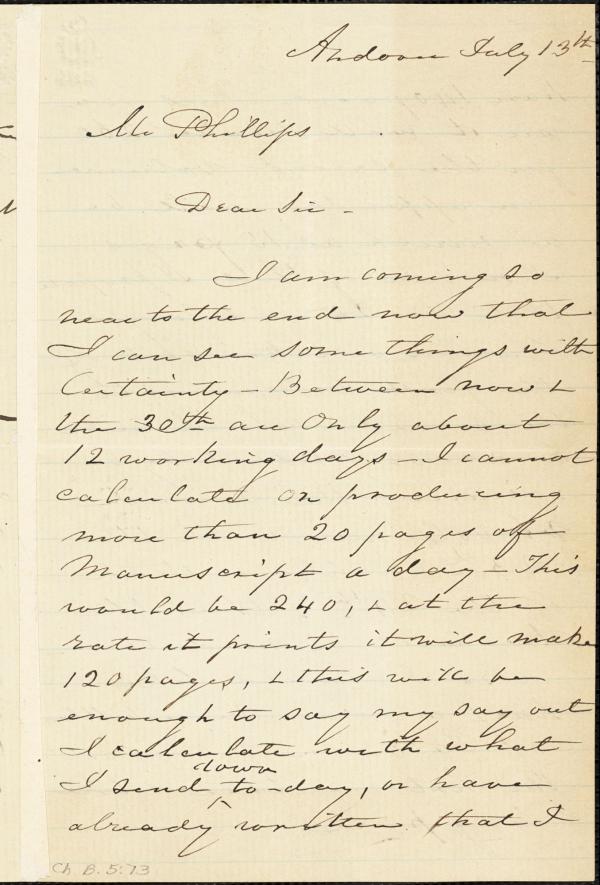 Andover July 13th
Mr Phillips
Dear Sir -
I am coming so
near to the end now that
I can see some things with
Certainty - Between now &
the 30th are only about
12 working days - I cannot
calculate on producing
more than 20 pages of
Manuscript a day - This
would be 240, & at the
rate it prints it will make
120 pages, & this will be
enough to say my say out
I calculate with what
I send down to-day, or have
already written that I
Ch. B. 5.73